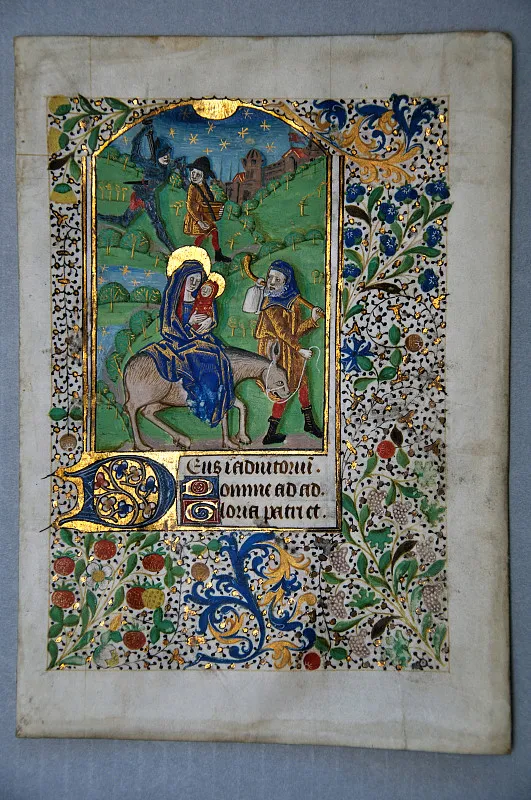 Deus i adiutoriū.
Domine ad ad
Gloria patri et